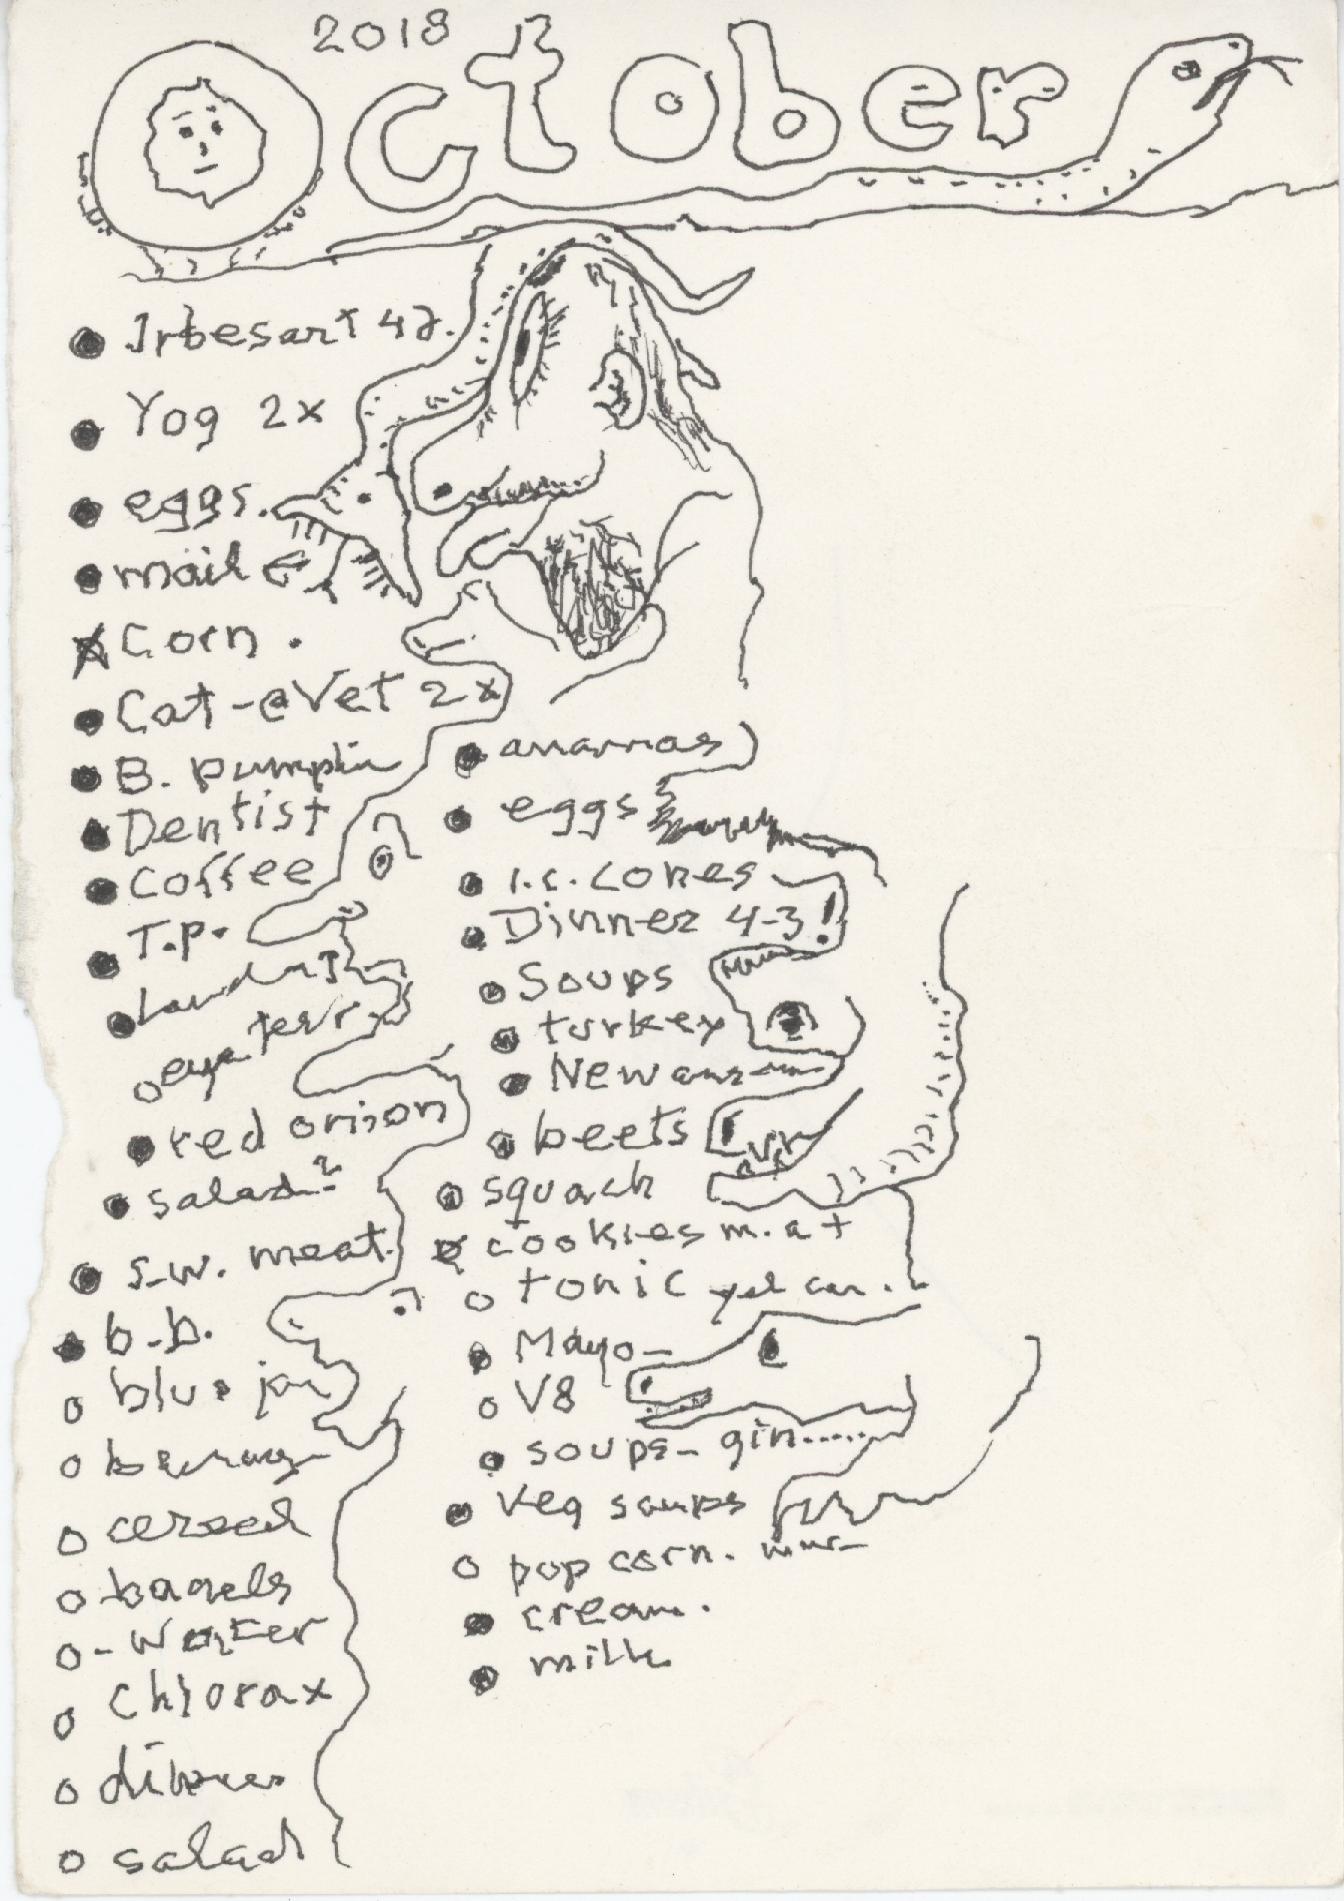 2018
October
Irbesart 42.
Yog 2x
eggs.
mail
Corn.
Cat-@Vet 2x
B. pumpkin
Dentist
Coffee
T.P.
Laundry
eye
red onion
salad?
S.W. meat.
b.b.
blue jar
cereal
bagels
-Water
Chlorax
salad
ananas
eggs
I.C. Cones
Dinner 4-3!
Soups
turkey
beets
squash
cookies m.a t
tonic
Mayo-
V8
soups- gin......
Veg soups
pop corn.
cream.
milk